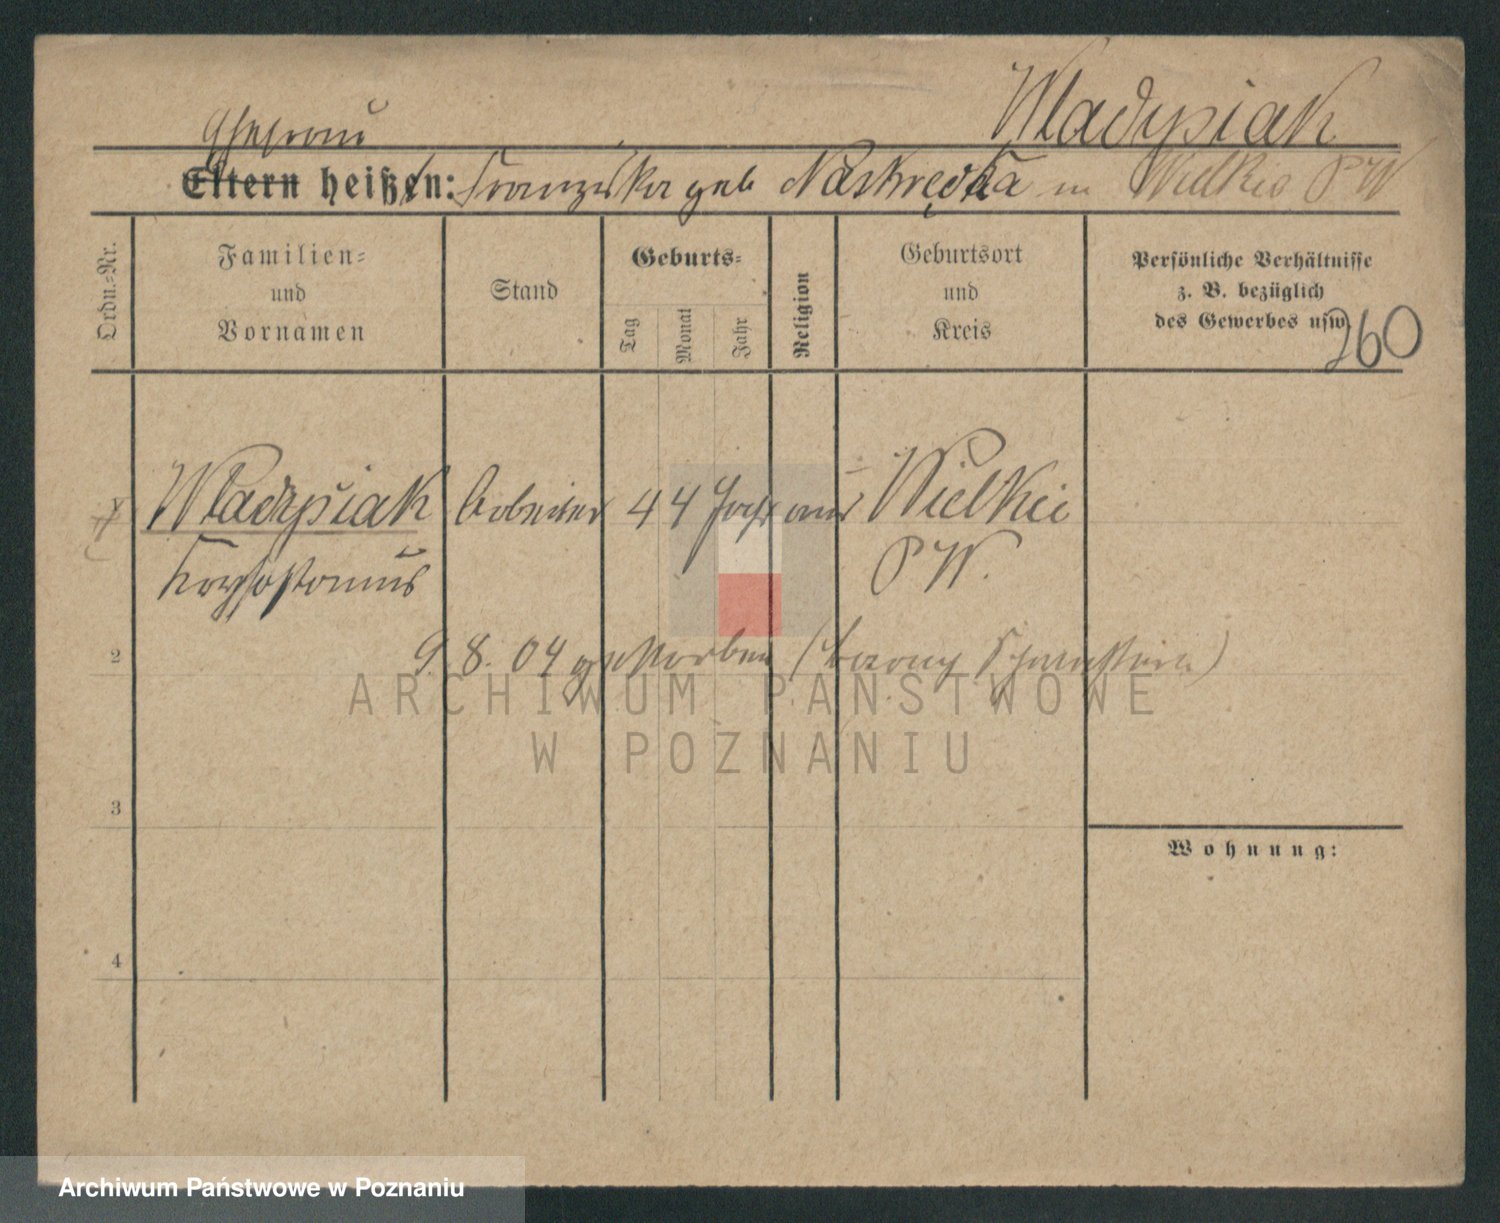 Wladysiak
Ehefrau
Eltern heißen: Franziska geb Naskręcka in Wielkie PW
Ordn.-Nr.
Familien-
und
Vornamen
Stand
Geburts-
Tag
Monat
Jahr
Religion
Geburtsort
und
Kreis
Persönliche Verhältnisse
z. B. bezüglich
des Gewerbes usw.
260
Wladysiak Arbeiter 44 Jahr aus Wielkie
PW.
2
9. 8. 04 gestorben
3
Wohnung:
4
ARCHIWUM PAŃSTWOWE
W POZNANIU
Archiwum Państwowe w Poznaniu